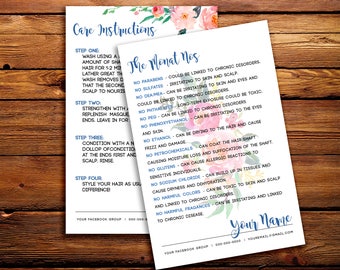 Care Instructions
STEP ONE:
WASH USING A
AMOUNT OF SHA
HAIR FOR 1-2 MI
LATHER GREAT
WASH REMOVES
AND THE SECON
SCALP TO NOURISH
STEP TWO:
STRENGTHEN WITH A
REPLENISH MASQUE
ENDS. LEAVE IN FOR
STEP THREE
CONDITION WITH A N
DOLLOP OF CONDITION
AT THE ENDS FIRST AND
SCALP. RINSE
STEP FOUR
STYLE YOUR HAIR AS USUAL
OF
YOUR FACEBOOK GROUP | 000-000-0000
The Monat Nos:
NO PARABENS - COULD BE LINKED TO CHRONIC DISORDERS
NO SULFATES - IRRITATING TO SKIN AND SCALP.
NO DEA/MEA - CAN BE IRRITATING TO THE EYES AND
SKIN AND COULD BE LINKED TO CHRONIC DISORDERS
NO PHTHALATES - LONG-TERM EXPOSURE COULD BE TOXIC.
NO PEG - CAN BE LINKED TO CHRONIC DISORDERS.
NO PHENOXYETHANOL - CAN BE IRRITATING TO THE EYES
AND SKIN.
NO ETHANOL - CAN BE DRYING TO THE HAIR AND CAUSE
HARM AND DAMAGE.
NO PETROCHEMICALS - CAN COAT THE HAIR SHAFT,
CAUSING MOISTURE LOSS AND SUFFOCATION OF THE SHAFT.
NO GLUTENS - CAN CAUSE ALLERGIC REACTIONS TO
SENSITIVE INDIVIDUALS.
NO SODIUM CHLORIDE - CAN BUILD UP IN TISSUES AND
CAUSE DRYNESS AND DEHYDRATION.
NO HARMFUL COLORS - CAN BE TOXIC TO SKIN AND SCALP
AND LINKED TO CHRONIC DISORDERS.
NO HARMFUL FRAGRANCES - CAN BE IRRITATING AND LINKED
TO CHRONIC DISEASE.
Your Name
YOUR FACEBOOK GROUP | 000-000-0000 | YOUREMAIL@EMAIL.COM